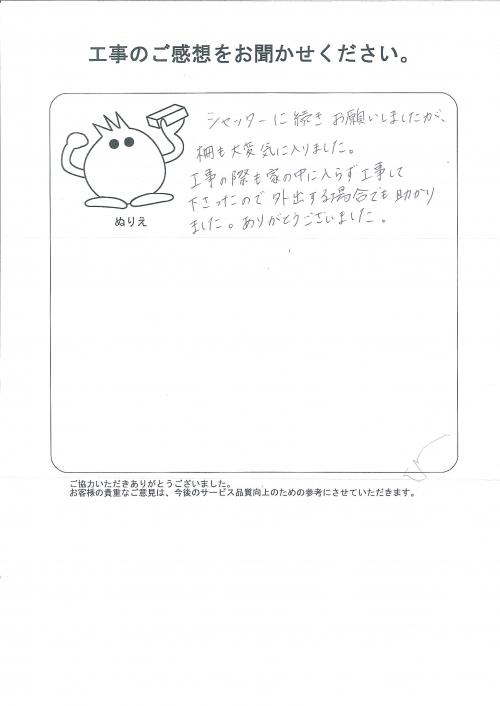 工事のご感想をお聞かせください。
シャッターに続きお願いしましたが、
柵も大変気に入りました。
工事の際も家の中に入らず工事して
下さったので外出する場合でも助かり
ました。ありがとうございました。
ぬりえ
ご協力いただきありがとうございました。
お客様の貴重なご意見は、今後のサービス品質向上のための参考にさせていただきます。